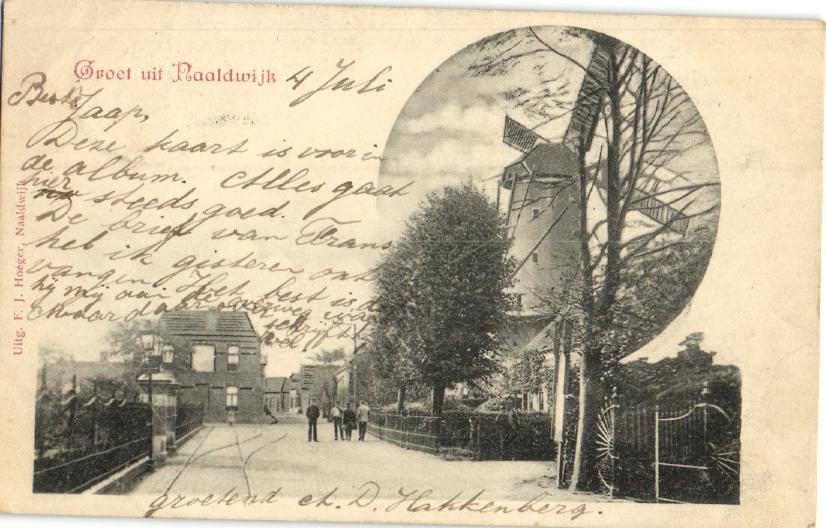 Groet uit Naaldwijk
4 Juli
Beste Jaap,
Deze kaart is voor in
de album. Alles gaat
hier steeds goed.
De brief van Frans
heb ik gisteren ont
vangen. Het best is d
hij mij aan de
maar daarover
schrijft
wel
groetend ch. D. Hakkenberg.
Uitg. F. J. Hoeger, Naaldwijk